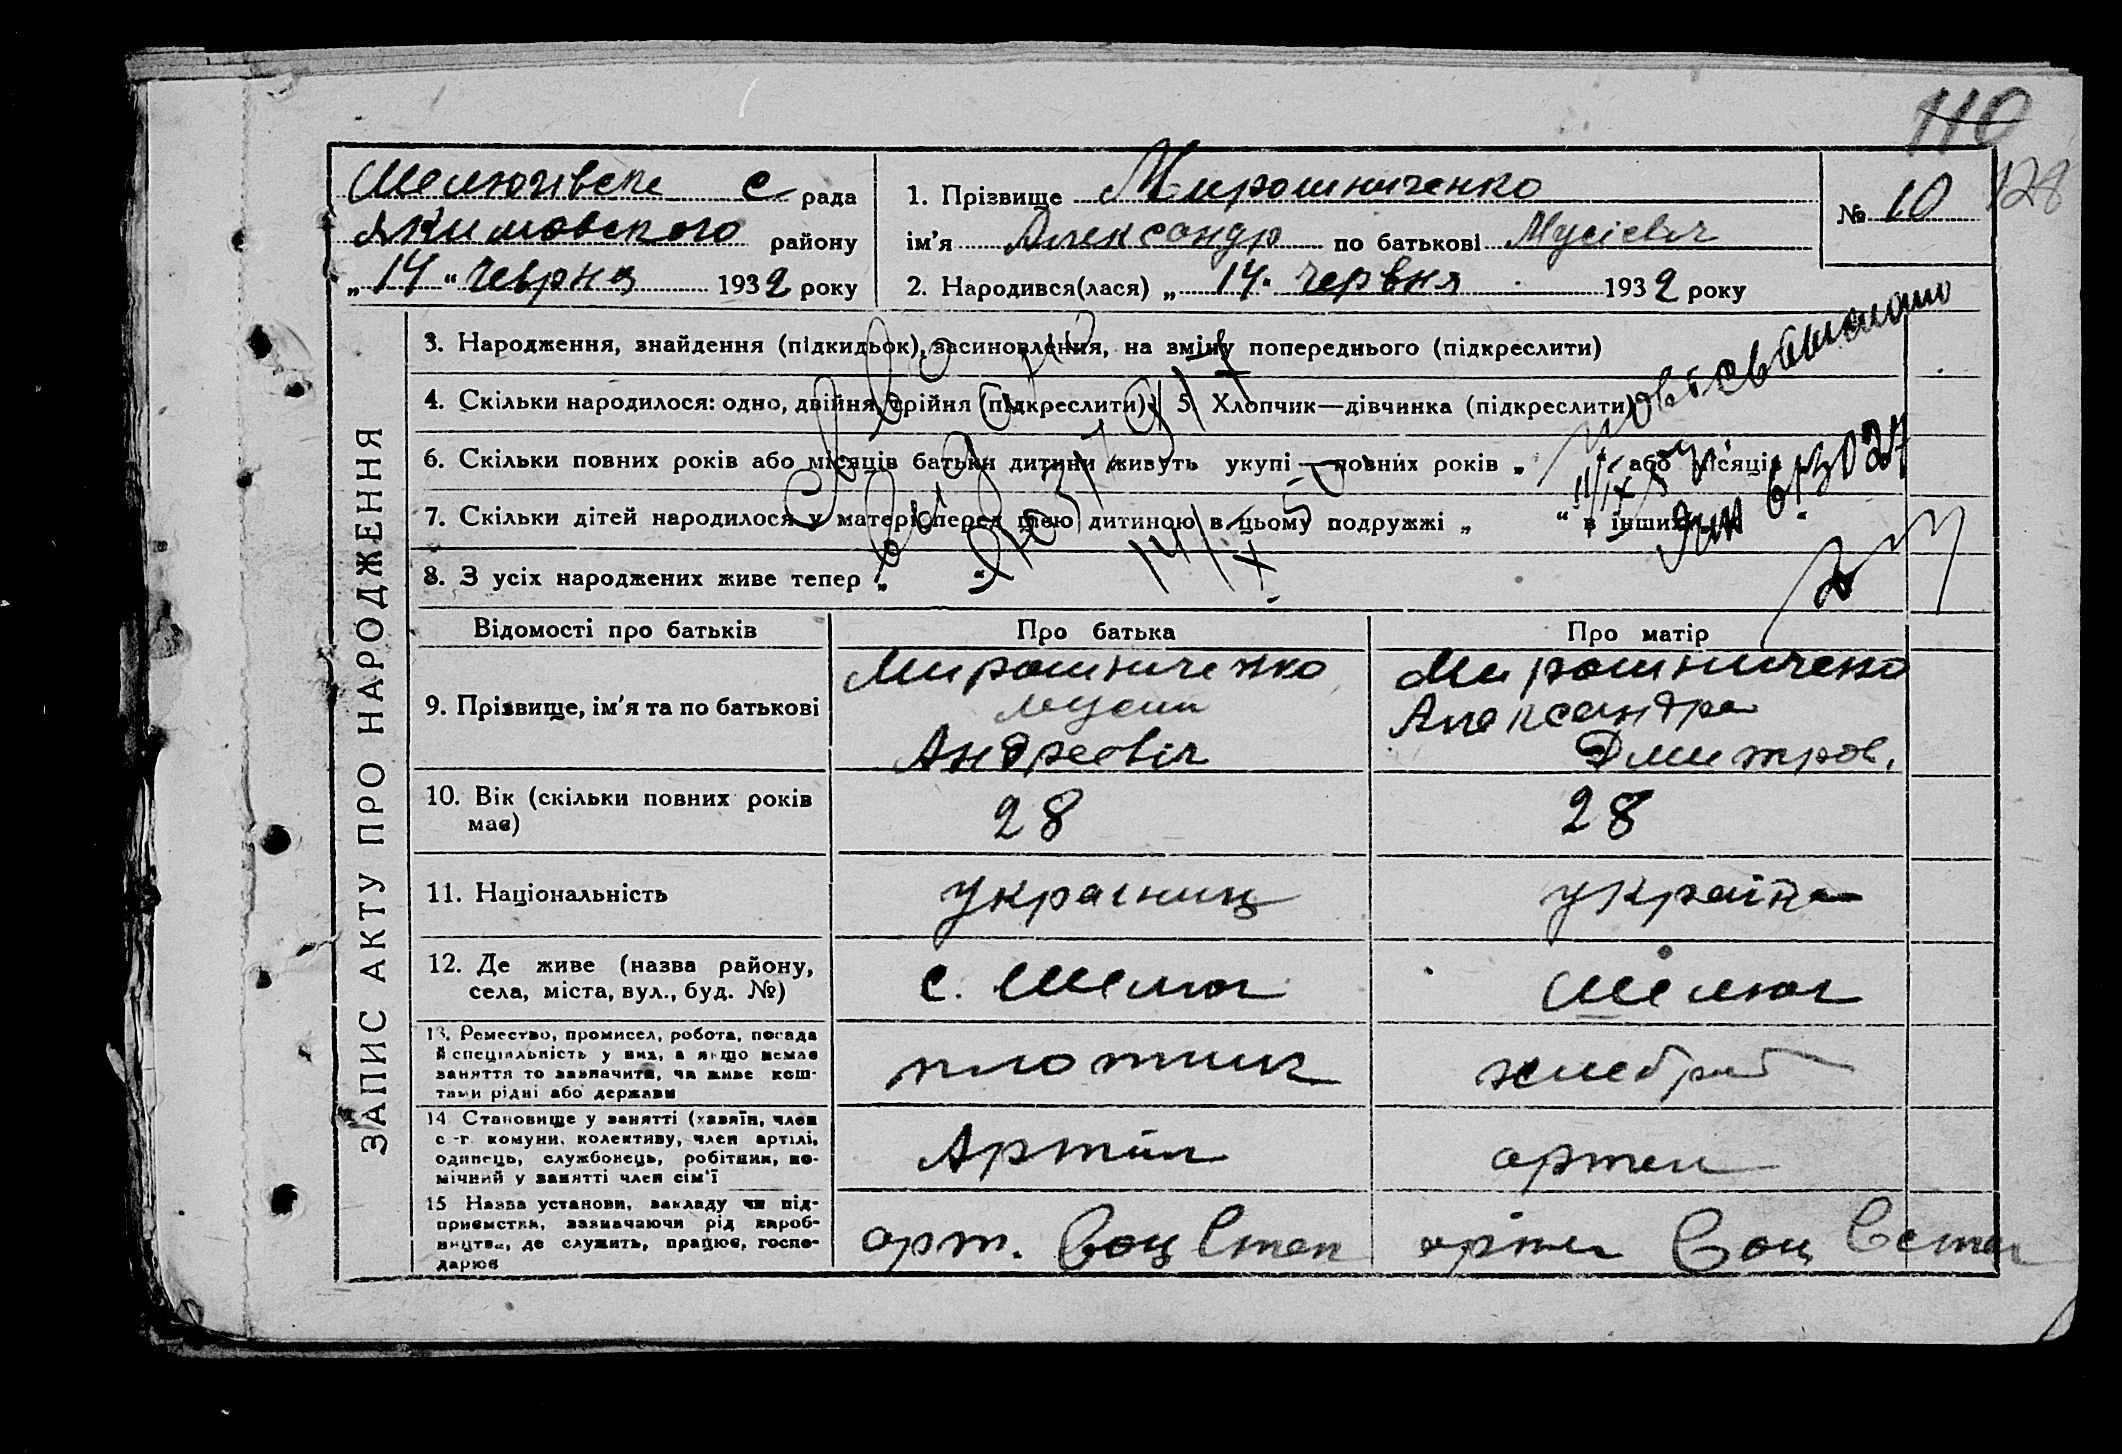 110
128
Шелюгівська с. рада
Якимовского району
„14“ чеврня 1932 року
1. Прізвище Мирошниченко
ім'я Александр по батькові Мусієвич
2. Народився(лася) „14“ червня 1932 року
№ 10
ЗАПИС АКТУ ПРО НАРОДЖЕННЯ
3. Народження, знайдення (підкидьок), засиновлення, на зміну попереднього (підкреслити)
4. Скільки народилося: одно, двійня, трійня (підкреслити) 5. Хлопчик—дівчинка (підкреслити)
6. Скільки повних років або місяців батьки дитини живуть укупі — повних років „ “ або місяців
7. Скільки дітей народилося у матері перед цією дитиною в цьому подружжі „ “ в інших „ “
8. З усіх народжених живе тепер „ “
Відомості про батьків Про батька Про матір
9. Прізвище, ім'я та по батькові
Мирошниченко
Мусий
Андреевіч
Мирошниченко
Александра
Дмитров.
10. Вік (скільки повних років
має)
28
28
11. Національність
украінец
україн
12. Де живе (назва району,
села, міста, вул., буд. №)
с. Шелюг
Шелюг
13. Ремество, промисел, робота, посада
й спеціяльність у них, а якщо немає
заняття то зазначити, чи живе кош-
тами рідні або держави
плотник
хлеброб
14. Становище у занятті (хазяїн, член
с.-г. комуни, колективу, член артілі,
одинець, службовець, робітник, по-
мічний у занятті член сім'ї
Артіл
артел
15. Назва установи, закладу чи під-
приємства, зазначаючи рід вироб-
ництва, де служить, працює, госпо-
дарює
арт. Соц Степ
артел Соц Степ